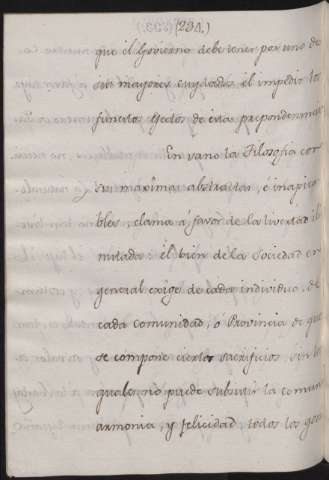 (234.)
que el Govierno debe tener por uno de
sus mayores cuydados el impedir los
funestos efectos de esta preponderancia
En vano la Filosofia con
sus maximas abstractas, é inaplica
bles, clama á favor de la livertad ili
mitada: el bien de la Sociedad en
general exige de cada individuo, de
cada comunidad, o Provincia de que
se compone ciertos sacrificios, sin los
quales no puede subsistir la comun
armonia, y felicidad todos los